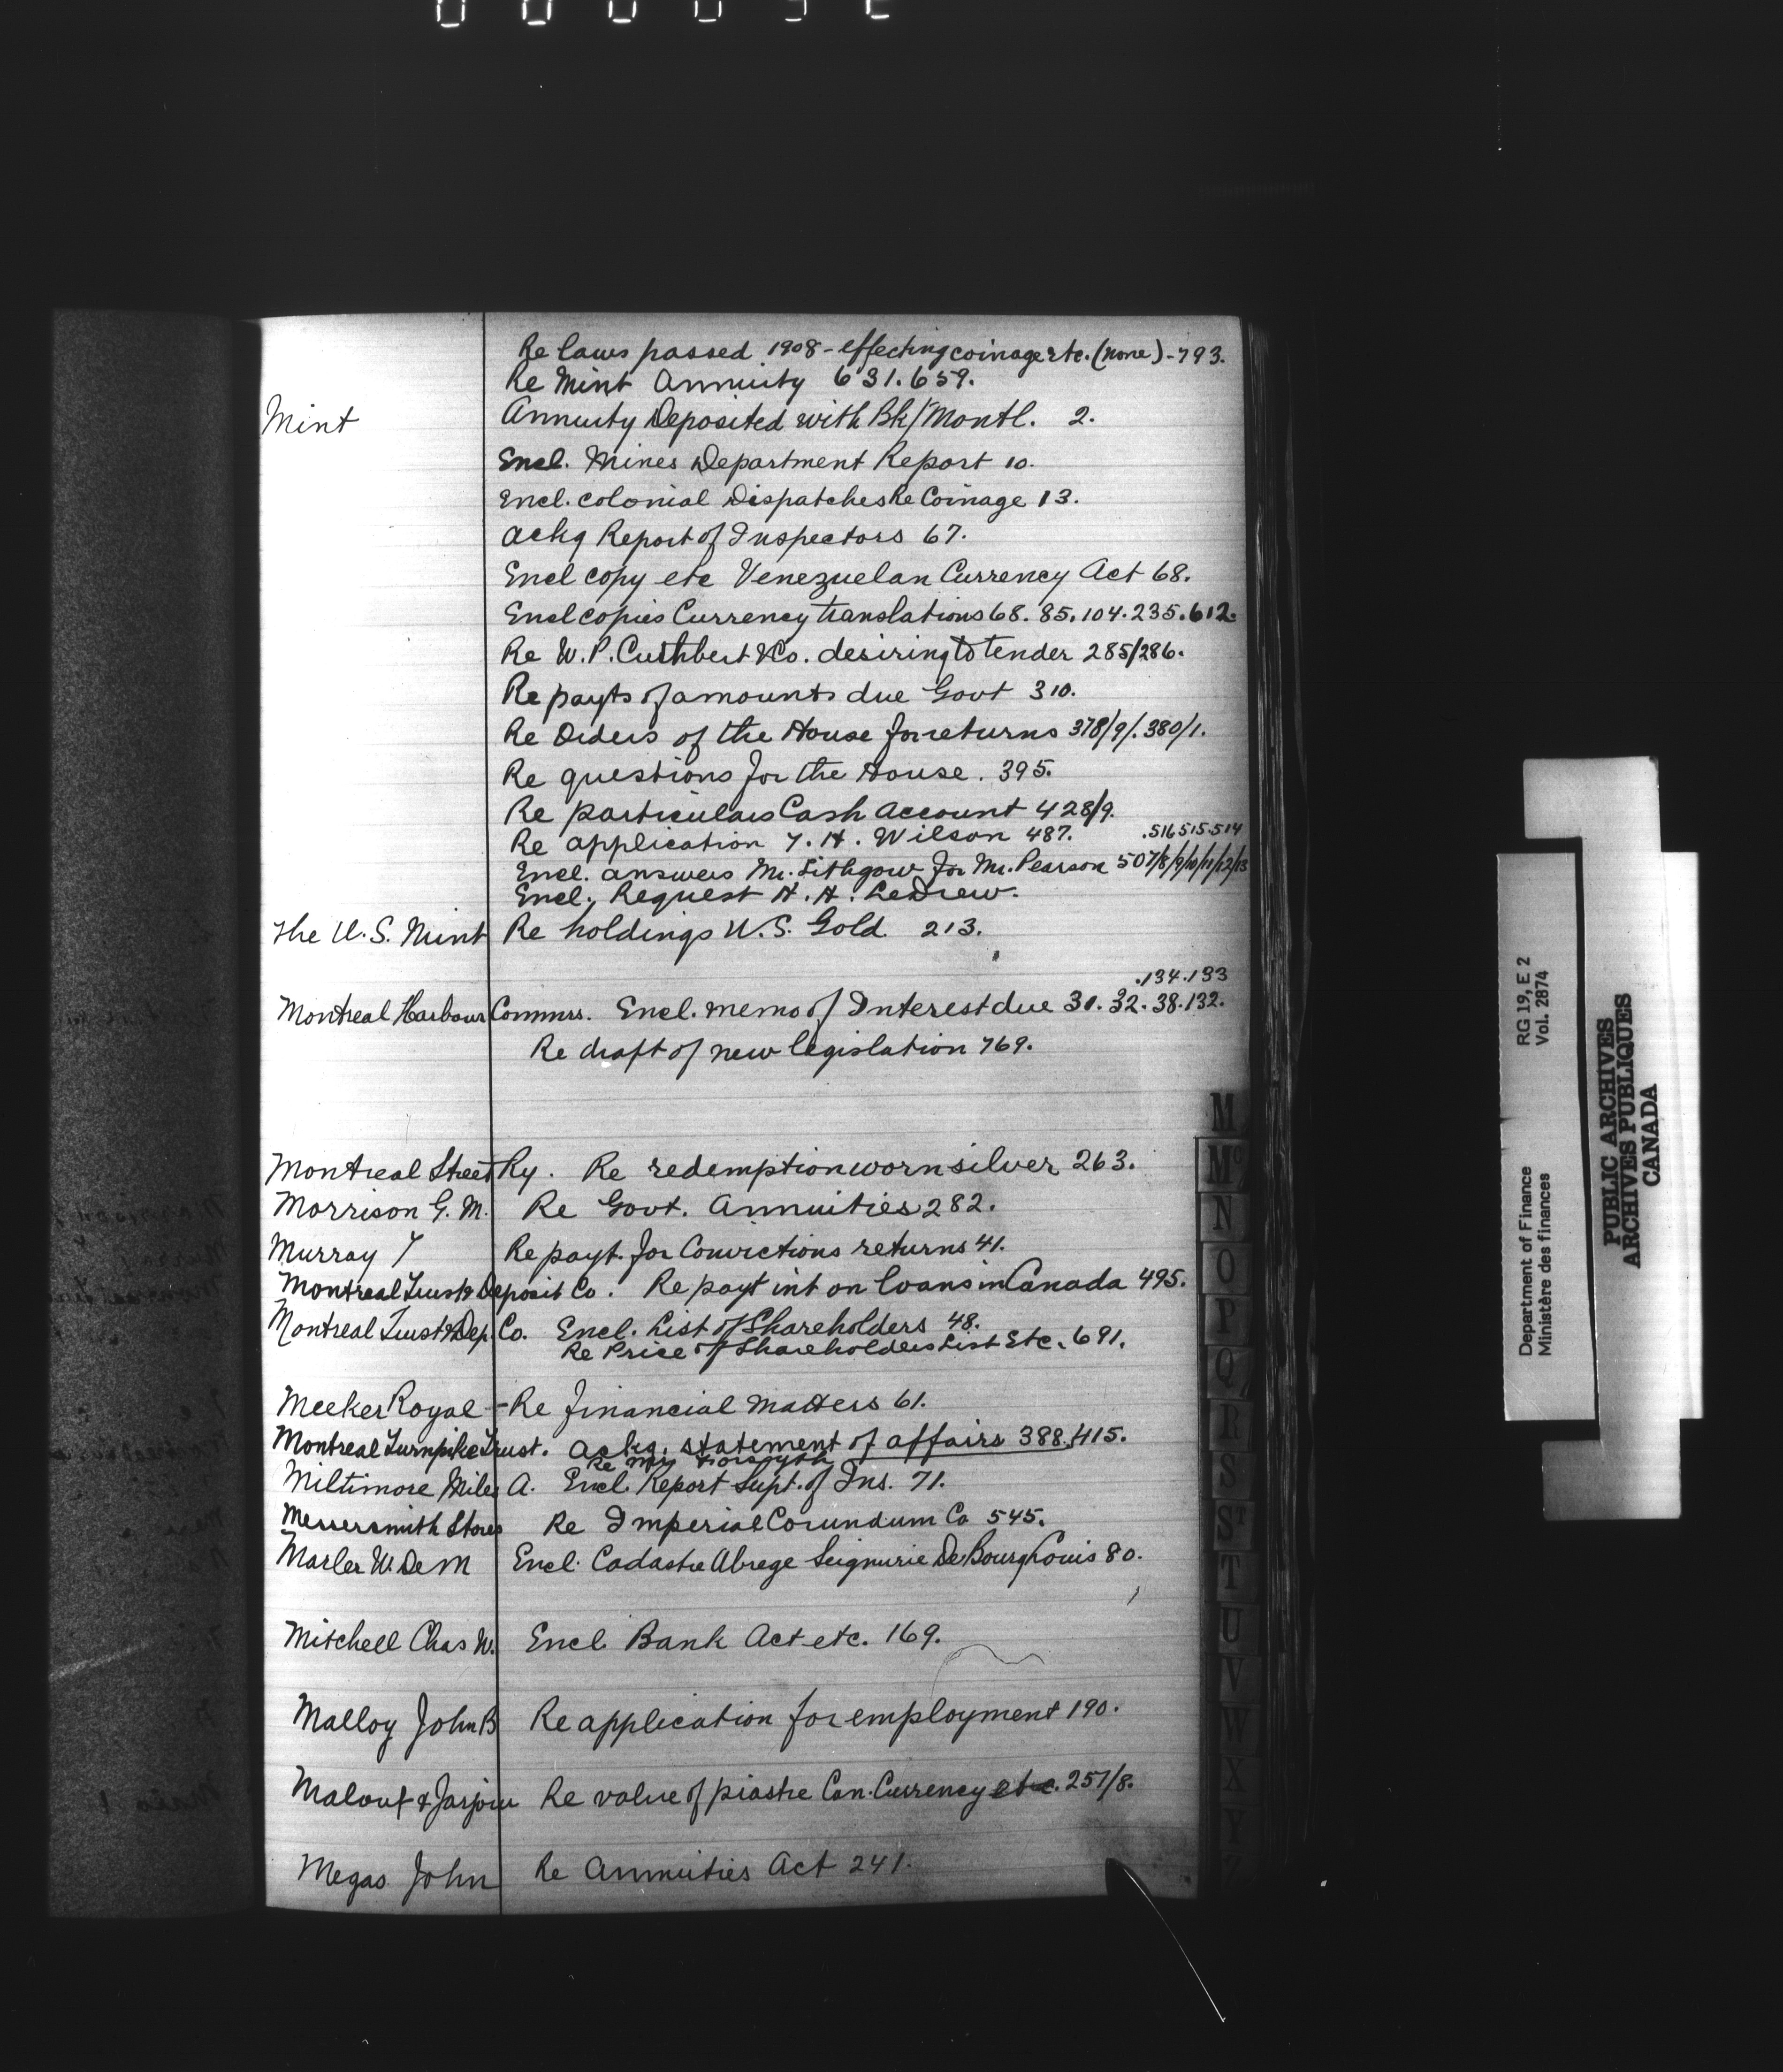 Re laws passed 1908 - effecting coinage etc. (none) - 793.
Re Mint Annuity 631. 659.
Mint Annuity Deposited with Bk/Montl. 2.
Encl. Mines Department Report 10.
Encl. colonial Dispatches Re Coinage 13.
Ackg Report of Inspectors 67.
Encl copy etc Venezuelan Currency Act 68.
Encl copies Currency translations 68. 85. 104. 235. 612.
Re W. P. Cuthbert & Co. desiring to tender 285/286.
Re payts of amounts due Govt 310.
Re Orders of the House for returns 378/9/. 380/1.
Re questions for the House. 395.
Re particulars Cash Account 428/9.
Re application T. H. Wilson 487. .516 515.514
Encl. answers Mr. Lithgow for Mr. Pearson 507/8/9/10/11/12/13
Encl. Request H. H. LeDrew.
The U.S. Mint Re holdings U.S. Gold 213.
.134.133
Montreal Harbour Commrs. Encl. memo of Interest due 30. 32. 38. 132.
Re draft of new legislation 769.
Montreal Street Ry. Re redemption worn silver 263.
Morrison G. M. Re Govt. Annuities 282.
Murray T Re payt. for Convictions returns 41.
Montreal Trust & Deposit Co. Re payt int on loans in Canada 495.
Montreal Trust & Dep. Co. Encl. List of Shareholders 48.
Re Price of Shareholders List Etc. 691.
Meeker Royal - Re financial matters 61.
Montreal Turnpike Trust. Ackg. statement of affairs 388. 415.
Re Mr Forsyth
Miltimore Miles A. Encl. Report Supt. of Ins. 71.
Messersmith Stores Re Imperial Corundum Co 545.
Marler W. De M Encl. Cadastre Abrege Seignurie De Bourg Louis 80.
Mitchell Chas W. Encl Bank Act etc. 169.
Malloy John B Re application for employment 190.
Malouf & Re value of piastre Can. Currency etc. 257/8.
Megas John Re Annuities Act 241.
M
Mc
N
O
P
Q
R
S
ST
T
U
V
W
X
Y
Z
Department of Finance RG 19, E 2
Ministère des finances Vol. 2874
PUBLIC ARCHIVES
ARCHIVES PUBLIQUES
CANADA